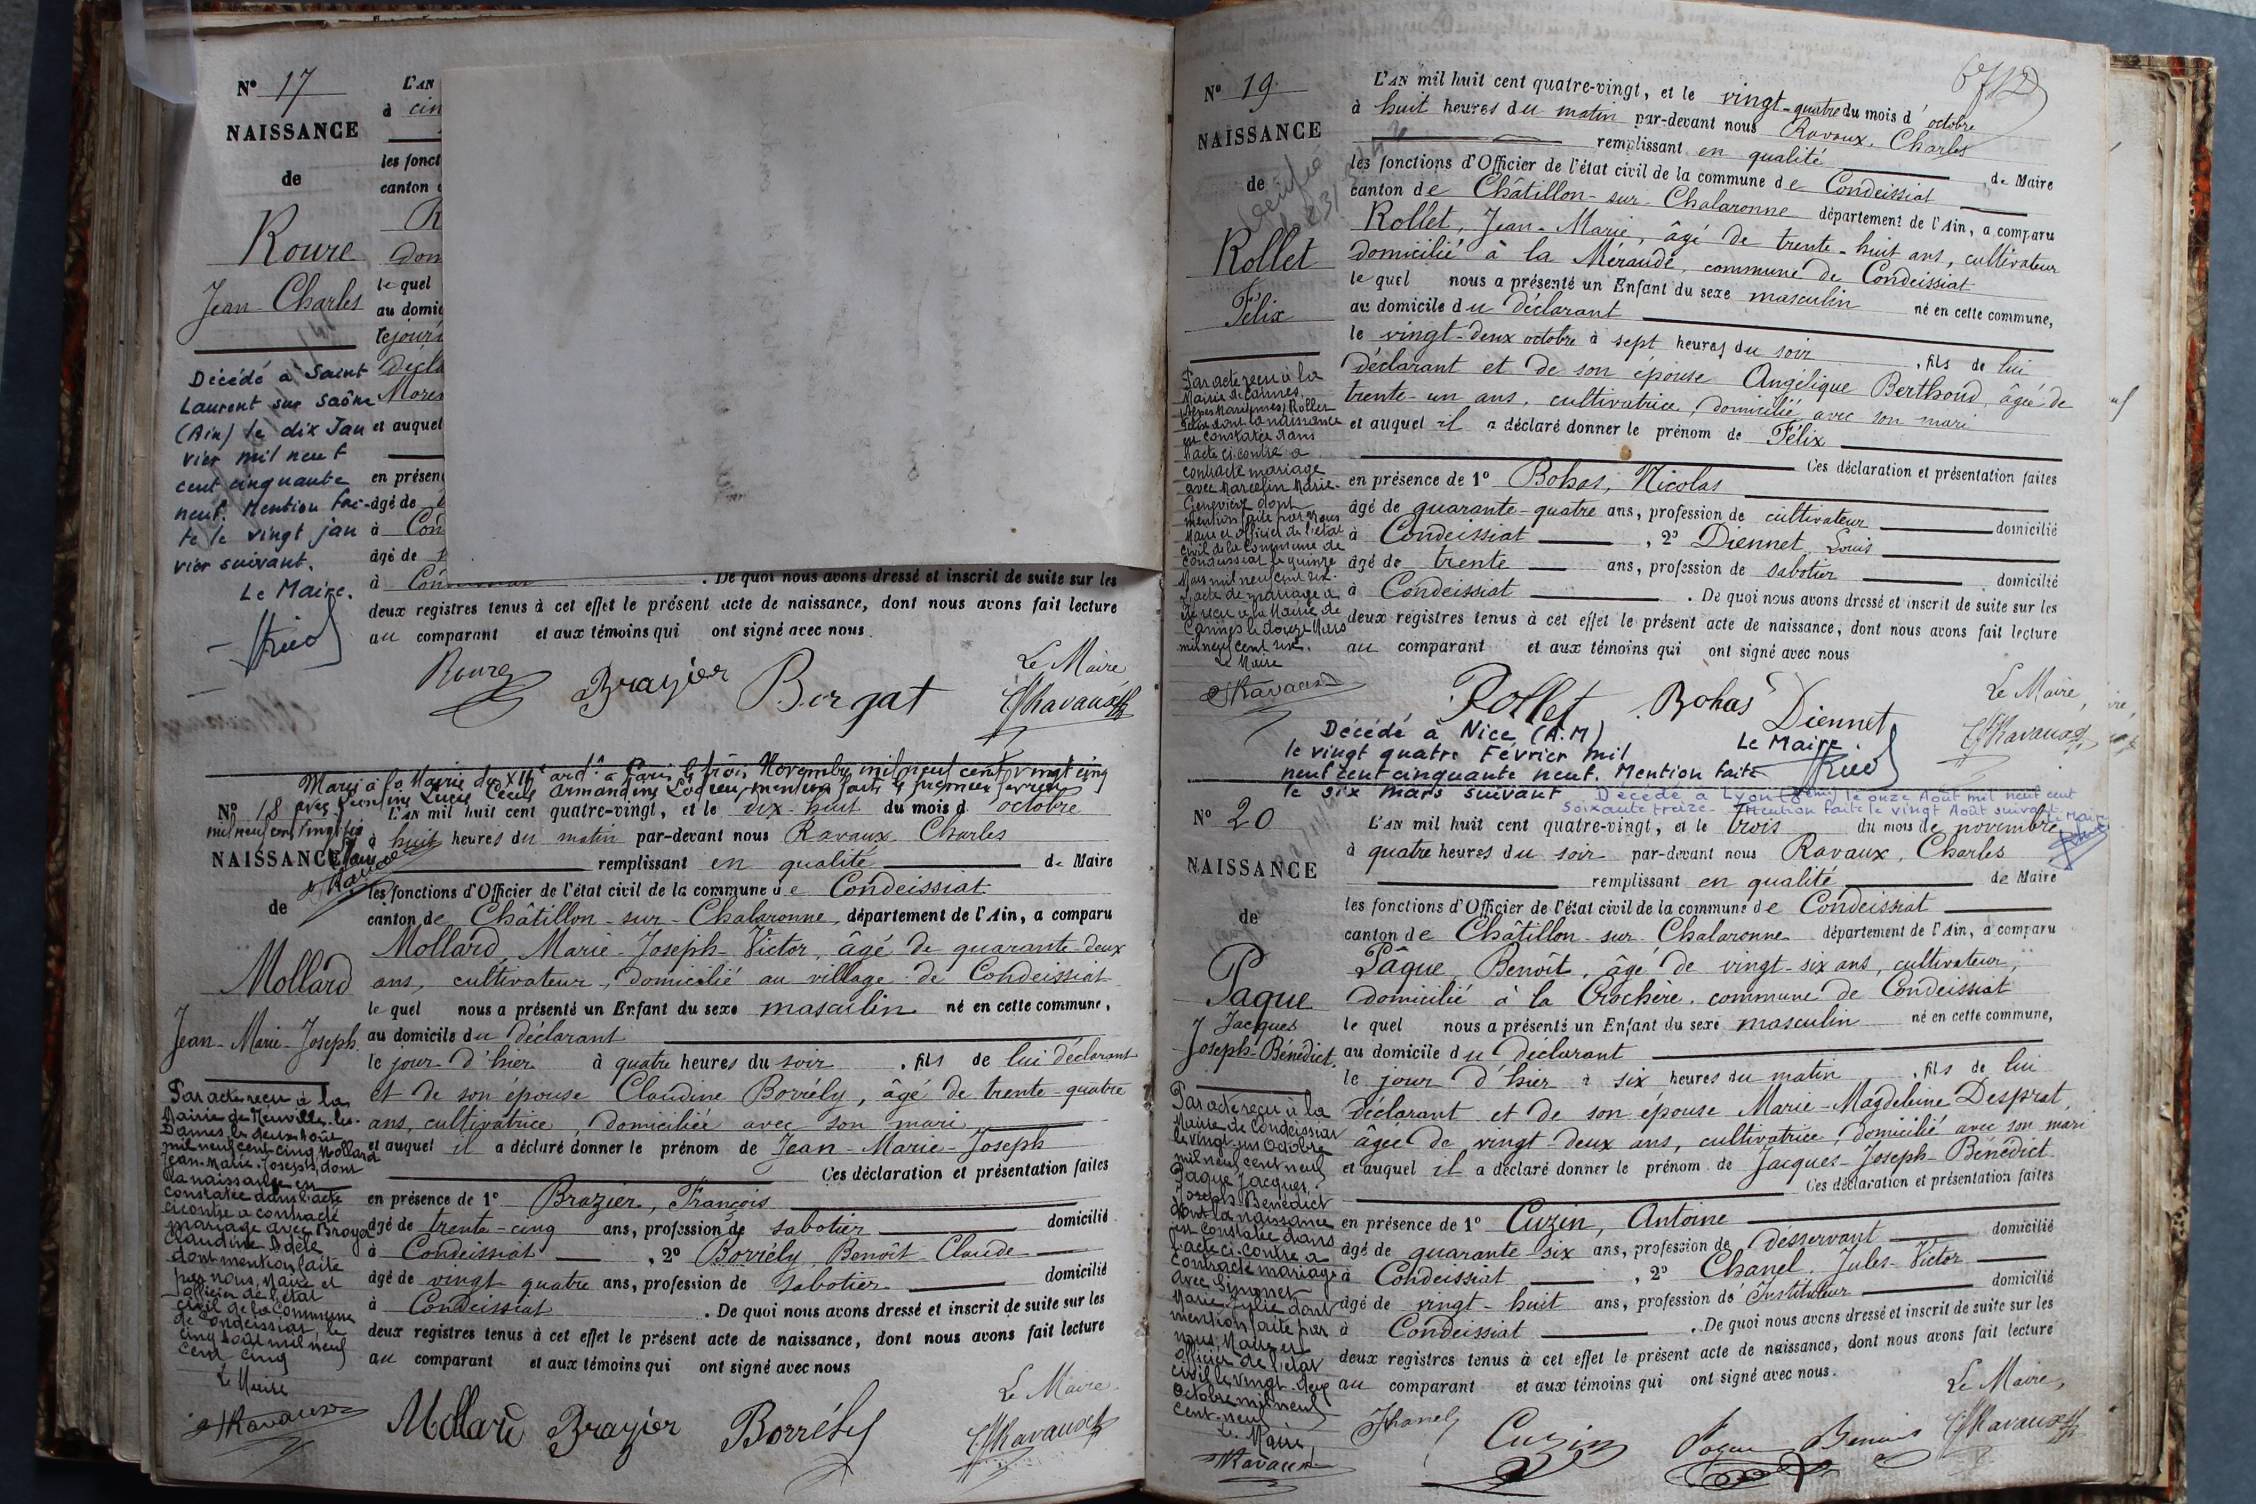 N° 17
NAISSANCE
de
Roure
Jean-Charles
L'AN
à cin
les fonct
canton
R
dom
le quel
au domic
le jour
décla
et auquel
en présen
âgé de
à Con
âgé de
à Con
. De quoi nous avons dressé et inscrit de suite sur les
deux registres tenus à cet effet le présent acte de naissance, dont nous avons fait lecture
au comparant et aux témoins qui ont signé avec nous
Décédé à Saint
Laurent sur Saône
(Ain) le dix Jan
vier mil neuf
cent cinquante
neuf. Mention fai-
te le vingt jan
vier suivant.
Le Maire.
Roure Brazier Borgat
Le Maire
Ch Ravaux
Marié à la Mairie du XIIe ardt à Paris le trois Novembre mil neuf cent vingt cinq
avec Lucie Cécile Armandine mention faite le premier février
mil neuf cent vingt six
Le Maire
N° 18
NAISSANCE
de
Mollard
Jean-Marie-Joseph
L'AN mil huit cent quatre-vingt, et le dix-huit du mois d'octobre
à huit heures du matin par-devant nous Ravaux Charles
remplissant en qualité de Maire
les fonctions d'Officier de l'état civil de la commune de Condeissiat
canton de Châtillon-sur-Chalaronne, département de l'Ain, a comparu
Mollard, Marie-Joseph-Victor, âgé de quarante-deux
ans, cultivateur, domicilié au village de Condeissiat
le quel nous a présenté un Enfant du sexe masculin né en cette commune,
au domicile du déclarant
le jour d'hier à quatre heures du soir, fils de lui déclarant
et de son épouse Claudine Borrély, âgé de trente-quatre
ans, cultivatrice, domiciliée avec son mari
et auquel il a déclaré donner le prénom de Jean-Marie-Joseph
Ces déclaration et présentation faites
en présence de 1° Brazier, François
âgé de trente-cinq ans, profession de sabotier domicilié
à Condeissiat, 2° Borrély, Benoît Claude
âgé de vingt quatre ans, profession de sabotier domicilié
à Condeissiat. De quoi nous avons dressé et inscrit de suite sur les
deux registres tenus à cet effet le présent acte de naissance, dont nous avons fait lecture
au comparant et aux témoins qui ont signé avec nous
Par acte reçu à la
Mairie de Neuville-les-
Dames le deux Août
mil neuf cent cinq Mollard
Jean-Marie-Joseph, dont
la naissance est
constatée dans l'acte
ci contre a contracté
mariage avec Broya
Claudine Adèle
dont mention faite
par nous, Maire et
officier de l'état
civil de la Commune
de Condeissiat, le
cinq Août mil neuf
cent cinq
Le Maire
Ravaux
Mollard Brazier Borrély
Le Maire
Ch Ravaux
67
N° 19
NAISSANCE
de
Rollet
Félix
L'AN mil huit cent quatre-vingt, et le vingt-quatre du mois d'octobre
à huit heures du matin par-devant nous Ravaux, Charles
remplissant en qualité de Maire
les fonctions d'Officier de l'état civil de la commune de Condeissiat
canton de Châtillon-sur-Chalaronne département de l'Ain, a comparu
Rollet, Jean-Marie, âgé de trente-huit ans, cultivateur
domicilié à la Méraude, commune de Condeissiat
le quel nous a présenté un Enfant du sexe masculin né en cette commune,
au domicile du déclarant
le vingt-deux octobre à sept heures du soir, fils de lui
déclarant et de son épouse Angélique Berthoud âgée de
trente-un ans, cultivatrice, domicilié avec son mari
et auquel il a déclaré donner le prénom de Félix
Ces déclaration et présentation faites
en présence de 1° Bohas, Nicolas
âgé de quarante-quatre ans, profession de cultivateur domicilié
à Condeissiat, 2° Diennet Louis
âgé de trente ans, profession de sabotier domicilié
à Condeissiat. De quoi nous avons dressé et inscrit de suite sur les
deux registres tenus à cet effet le présent acte de naissance, dont nous avons fait lecture
au comparant et aux témoins qui ont signé avec nous
Par acte reçu à la
Mairie de Cannes,
Alpes Maritimes, Rollet
Félix dont la naissance
est constatée dans
l'acte ci contre a
contracté mariage
avec Marcelin Marie-
Geneviève dont
mention faite par Nous
Maire et officier de l'état
civil de la Commune de
Condeissiat le quinze
Mars mil neuf cent six.
L'acte de mariage a
été reçu à la Mairie de
Cannes le douze Mars
mil neuf cent six.
Le Maire
Ravaux
Rollet Bohas Diennet
Le Maire,
Ch Ravaux
Décédé à Nice (A.M)
le vingt quatre Février mil
neuf cent cinquante neuf. Mention faite
le six mars suivant
Le Maire.
Décédé à Lyon (8ème) le onze Août mil neuf cent
soixante treize. Mention faite le vingt Août suivant. Le Maire
N° 20
NAISSANCE
de
Paque
Jacques
Joseph-Bénédict
L'AN mil huit cent quatre-vingt, et le trois du mois de novembre
à quatre heures du soir par-devant nous Ravaux, Charles
remplissant en qualité de Maire
les fonctions d'Officier de l'état civil de la commune de Condeissiat
canton de Châtillon-sur-Chalaronne département de l'Ain, a comparu
Pâque, Benoît, âgé de vingt-six ans, cultivateur,
domicilié à la Crochère, commune de Condeissiat
le quel nous a présenté un Enfant du sexe masculin né en cette commune,
au domicile du déclarant
le jour d'hier à six heures du matin, fils de lui
déclarant et de son épouse Marie-Magdeleine Despret,
âgée de vingt-deux ans, cultivatrice, domicilié avec son mari
et auquel il a déclaré donner le prénom de Jacques-Joseph-Bénédict
Ces déclaration et présentation faites
en présence de 1° Cuzin, Antoine
âgé de quarante-six ans, profession de désservant domicilié
à Condeissiat, 2° Chanel, Jules-Victor
âgé de vingt-huit ans, profession de Instituteur domicilié
à Condeissiat. De quoi nous avons dressé et inscrit de suite sur les
deux registres tenus à cet effet le présent acte de naissance, dont nous avons fait lecture
au comparant et aux témoins qui ont signé avec nous.
Par acte reçu à la
Mairie de Condeissiat
le vingt un Octobre
mil neuf cent neuf
Paque Jacques
Joseph Bénédict
dont la naissance
est constatée dans
l'acte ci-contre a
contracté mariage
avec Simonet
Marie Julie dont
mention faite par
nous, Maire et
officier de l'état
civil le vingt-deux
Octobre mil neuf
cent neuf
Le Maire,
Ravaux
Chanel Cuzin Paque Benoit
Le Maire,
Ch Ravaux